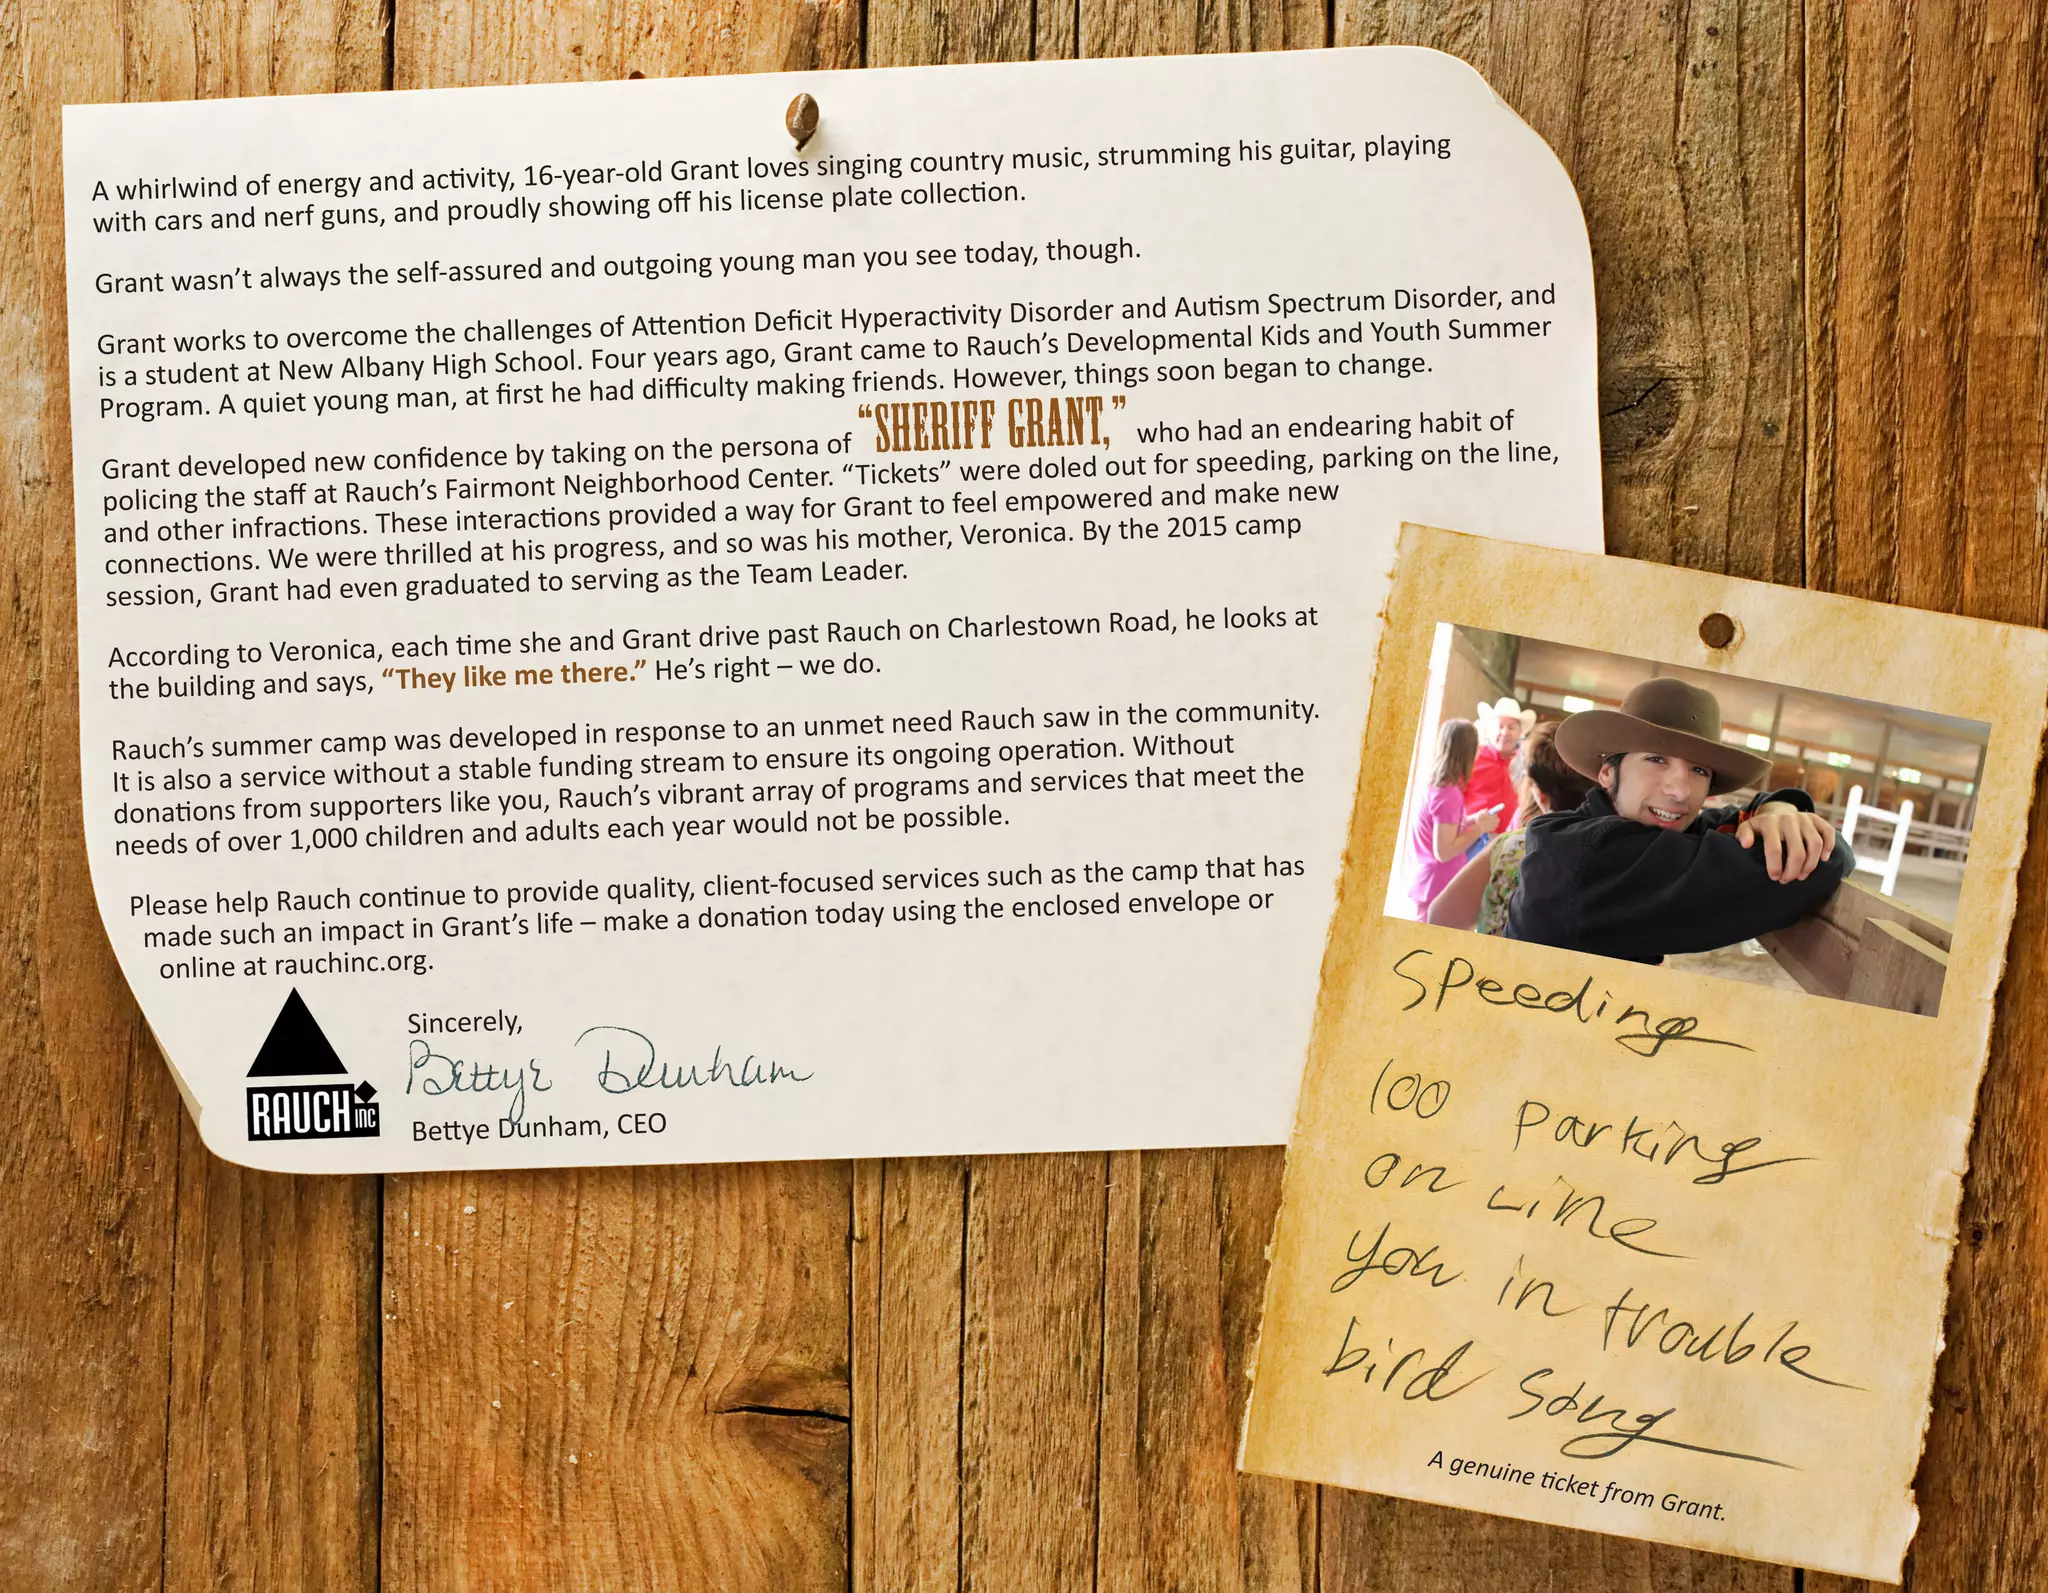 A whirlwind of energy and activity, 16-year-old Grant loves singing country music, strumming his guitar, playing
with cars and nerf guns, and proudly showing off his license plate collection.
Grant wasn’t always the self-assured and outgoing young man you see today, though.
Grant works to overcome the challenges of Attention Deficit Hyperactivity Disorder and Autism Spectrum Disorder, and
is a student at New Albany High School. Four years ago, Grant came to Rauch’s Developmental Kids and Youth Summer
Program. A quiet young man, at first he had difficulty making friends. However, things soon began to change.
Grant developed new confidence by taking on the persona of “SHERIFF GRANT,” who had an endearing habit of
policing the staff at Rauch’s Fairmont Neighborhood Center. “Tickets” were doled out for speeding, parking on the line,
and other infractions. These interactions provided a way for Grant to feel empowered and make new
connections. We were thrilled at his progress, and so was his mother, Veronica. By the 2015 camp
session, Grant had even graduated to serving as the Team Leader.
According to Veronica, each time she and Grant drive past Rauch on Charlestown Road, he looks at
the building and says, “They like me there.” He’s right – we do.
Rauch’s summer camp was developed in response to an unmet need Rauch saw in the community.
It is also a service without a stable funding stream to ensure its ongoing operation. Without
donations from supporters like you, Rauch’s vibrant array of programs and services that meet the
needs of over 1,000 children and adults each year would not be possible.
Please help Rauch continue to provide quality, client-focused services such as the camp that has
made such an impact in Grant’s life – make a donation today using the enclosed envelope or
online at rauchinc.org.
Sincerely,
Bettye Dunham
Bettye Dunham, CEO
RAUCH INC
Speeding
100 parking
on Line
you in trouble
bird song
A genuine ticket from Grant.